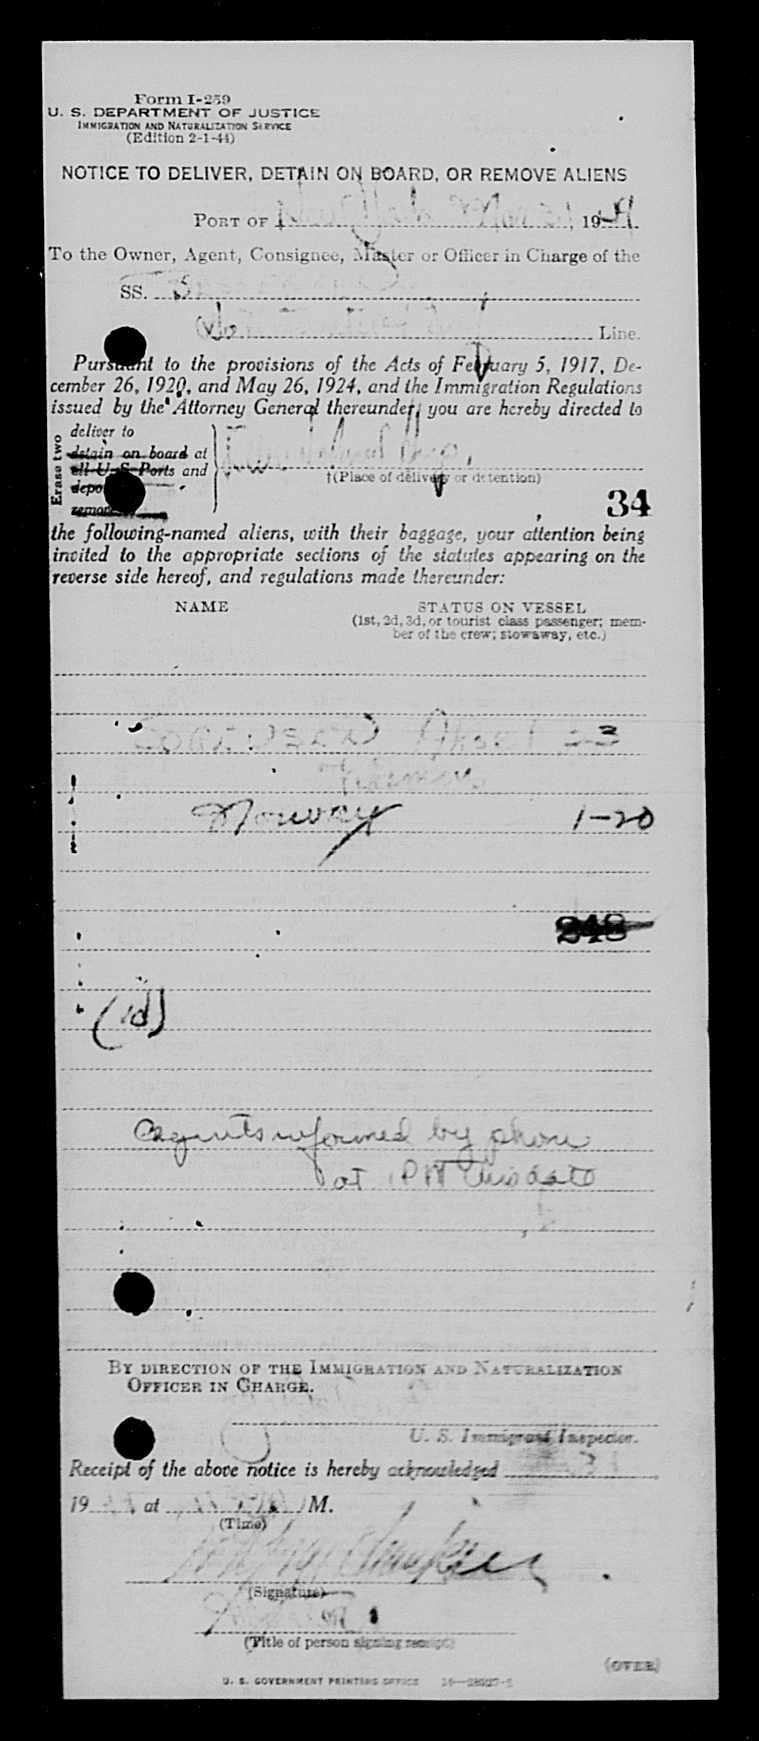 Form I-259
U. S. DEPARTMENT OF JUSTICE
IMMIGRATION AND NATURALIZATION SERVICE
(Edition 2-1-44)
NOTICE TO DELIVER, DETAIN ON BOARD, OR REMOVE ALIENS
PORT OF 19
To the Owner, Agent, Consignee, Master or Officer in Charge of the
SS.
Line.
Pursuant to the provisions of the Acts of February 5, 1917, De-
cember 26, 1920, and May 26, 1924, and the Immigration Regulations
issued by the Attorney General thereunder, you are hereby directed to
Erase two
deliver to
detain on board at
all U.S. Ports and
†(Place of delivery or detention)
34
the following-named aliens, with their baggage, your attention being
invited to the appropriate sections of the statutes appearing on the
reverse side hereof, and regulations made thereunder:
NAME STATUS ON VESSEL
(1st, 2d, 3d, or tourist class passenger; mem-
ber of the crew; stowaway, etc.)
Norway 1-20
248
(id)
Agents informed by phone
at 1PM this date
BY DIRECTION OF THE IMMIGRATION AND NATURALIZATION
OFFICER IN CHARGE.
U. S. Immigrant Inspector.
Receipt of the above notice is hereby acknowledged
19 at M.
(Time)
(Signature)
(Title of person signing receipt)
(OVER)
U. S. GOVERNMENT PRINTING OFFICE